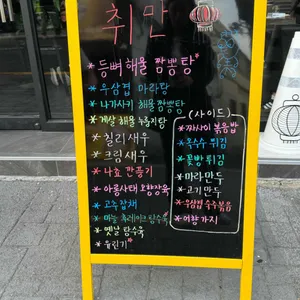 취만
* 등뼈해물짬뽕탕 *
* 우삼겹 마라탕
* 나가사키 해물짬뽕탕
* 게살 해물누룽지탕
* 칠리새우
* 크림새우
* 나효 깐풍기
* 아롱사태 오향장육
* 고추잡채
* 마늘 후레이크 탕수육
* 옛날 탕수육
* 유린기
(사이드)
* 짜사이 볶음밥
* 옥수수 튀김
* 꽃빵 튀김
* 마라만두
* 고기만두
* 우삼겹 숙주볶음
* 어향가지